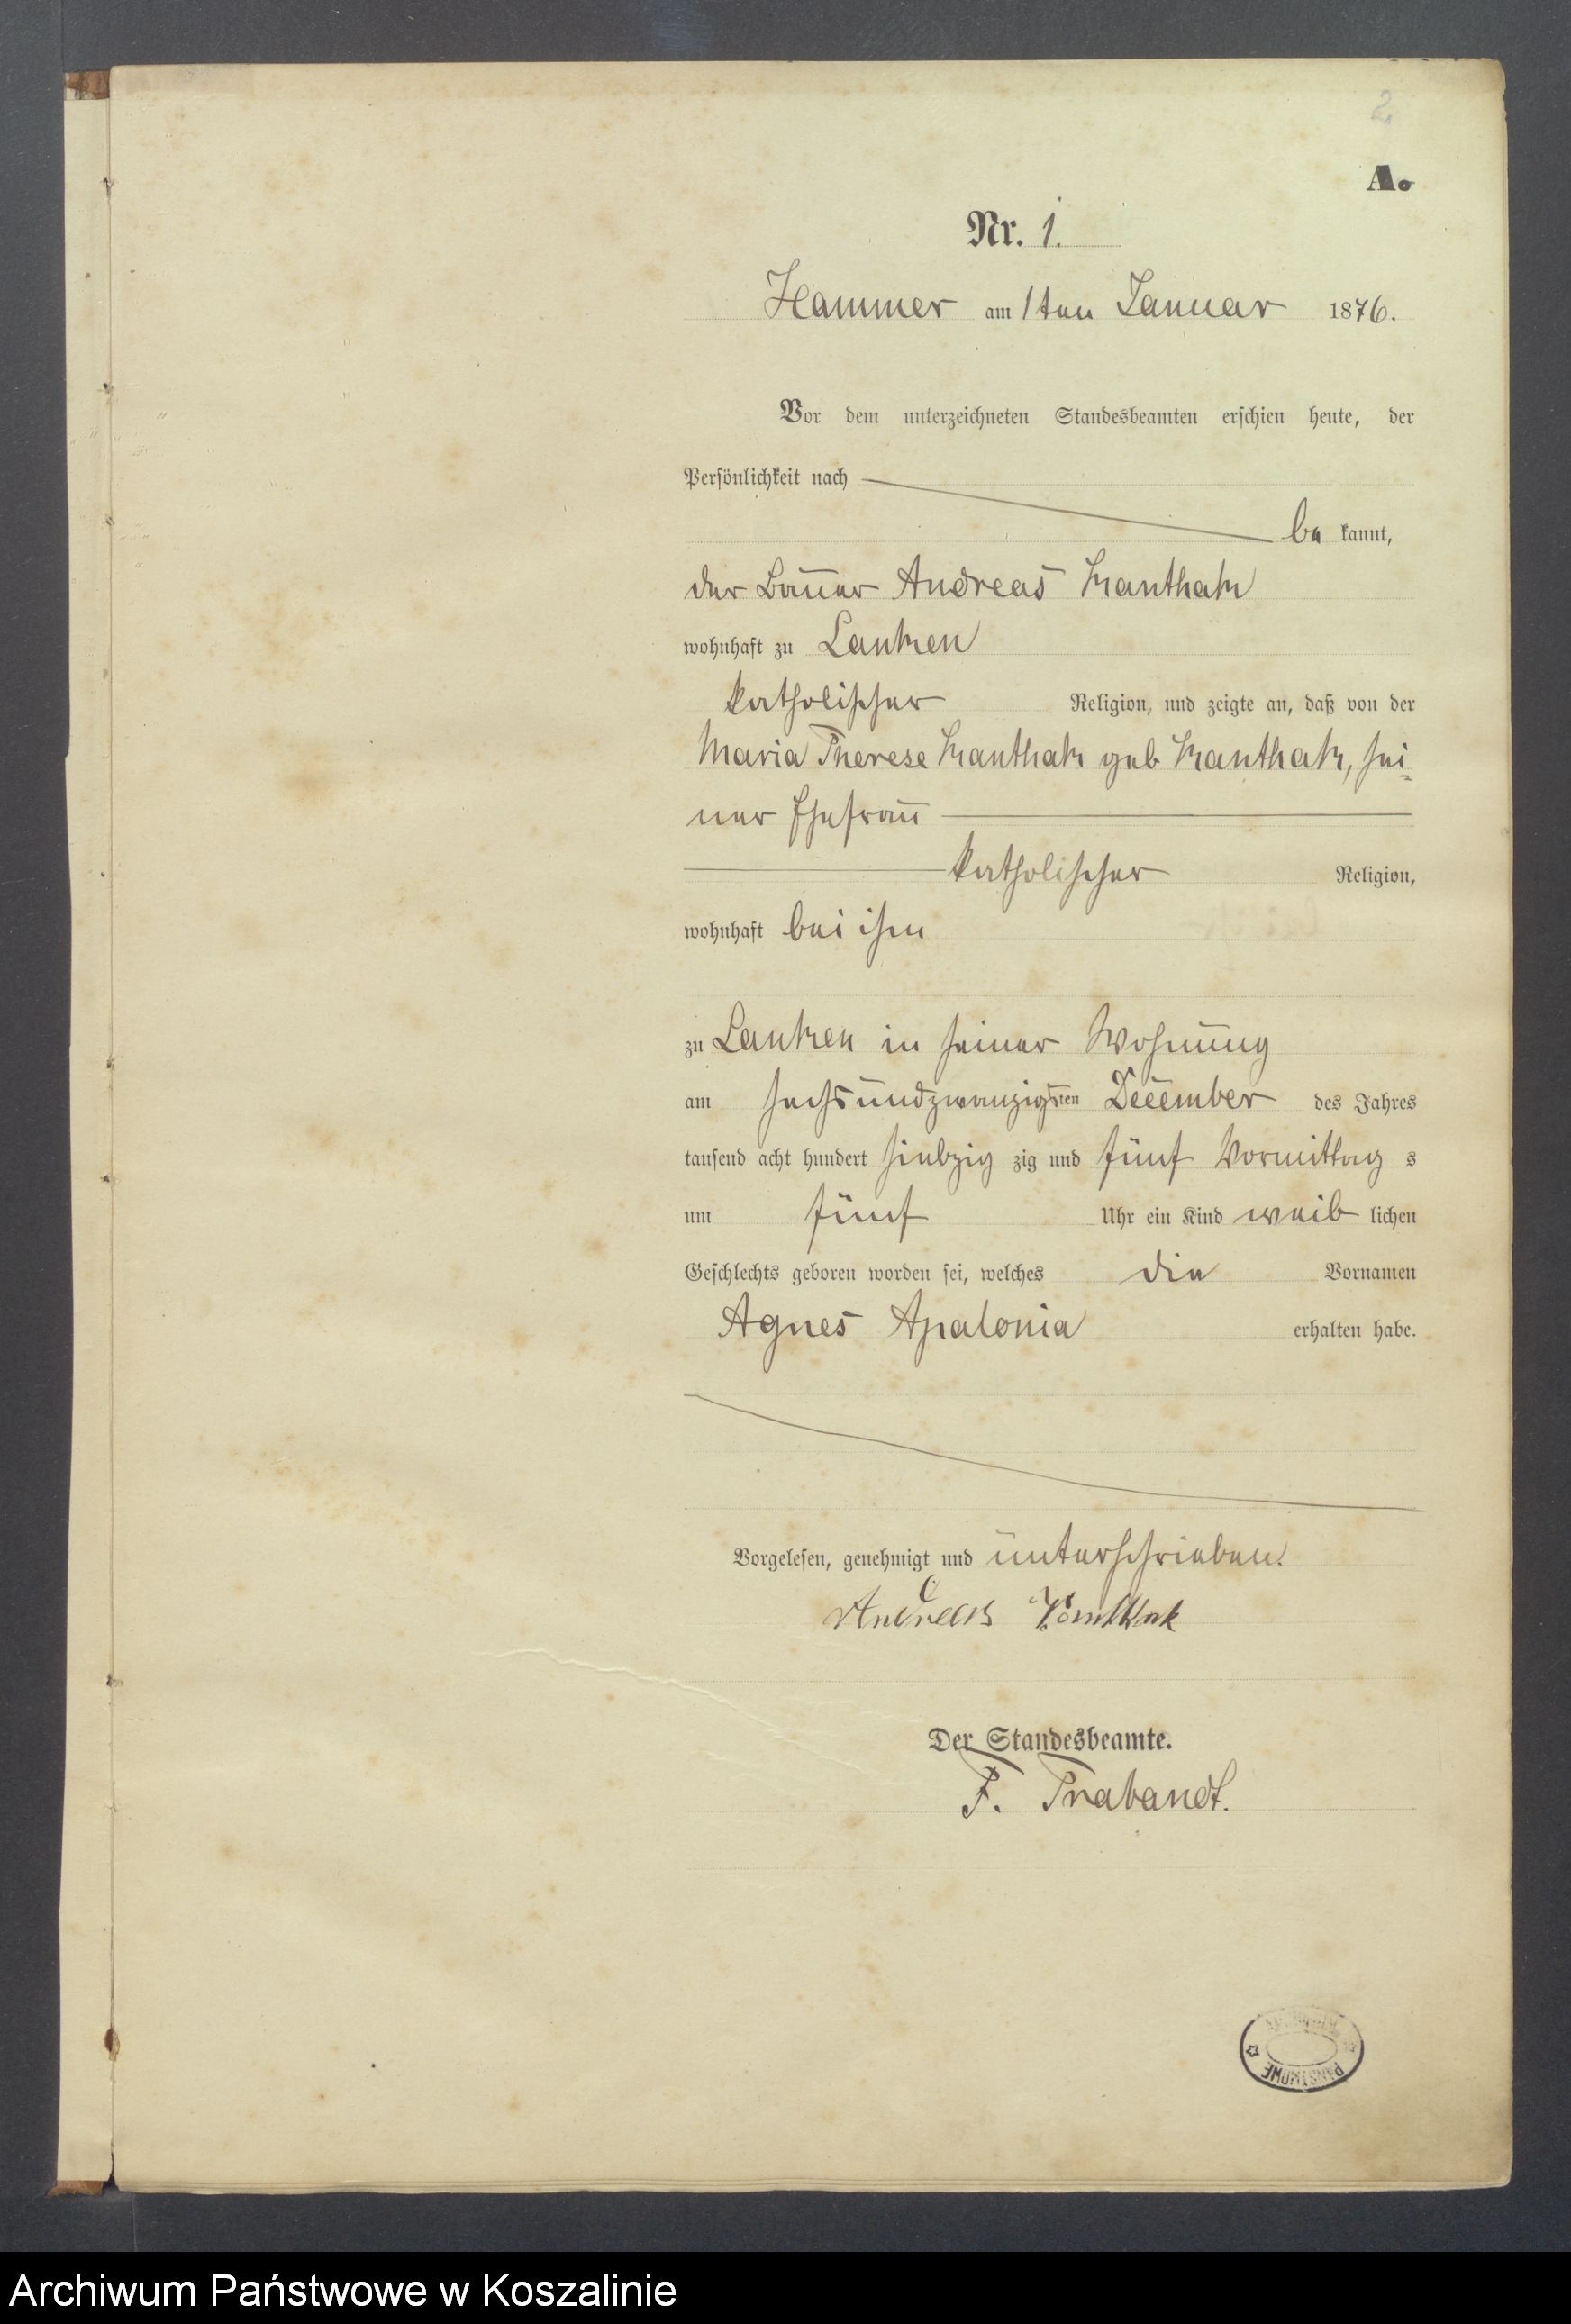 2
A.
Nr. 1.
Hammer am 1ten Januar 1876.
Vor dem unterzeichneten Standesbeamten erschien heute, der
Persönlichkeit nach
be kannt,
der Bauer Andreas Kanthak
wohnhaft zu Lanken
katholischer Religion, und zeigte an, daß von der
Maria Therese Kanthak geb Kanthak, sei=
ner Ehefrau
katholischer Religion,
wohnhaft bei ihm
zu Lanken in seiner Wohnung
am sechsundzwanzigsten December des Jahres
tausend acht hundert siebzig zig und fünf Vormittag s
um fünf Uhr ein Kind weib lichen
Geschlechts geboren worden sei, welches die Vornamen
Agnes Apalonia erhalten habe.
Vorgelesen, genehmigt und unterschrieben.
Andreas Kanthak
Der Standesbeamte.
F. Trabandt.
PAŃSTWOWE
Archiwum Państwowe w Koszalinie